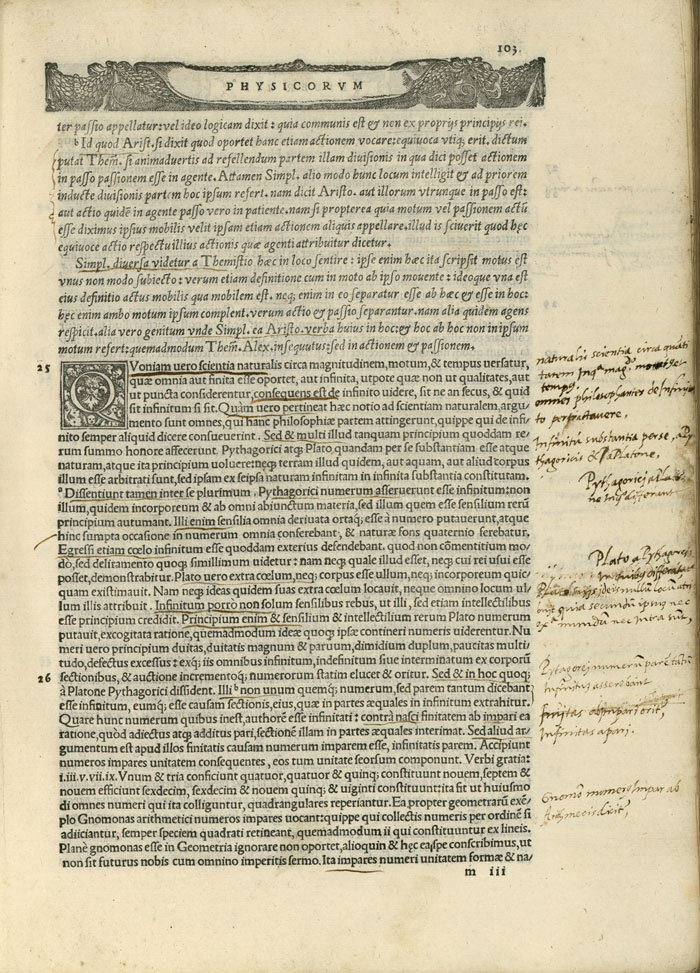 103
PHYSICORVM
ter passio appellatur: vel ideo logicam dixit: quia communis est & non ex proprijs principijs rei.
b Id quod Arist. si dixit quod oportet hanc etiam actionem vocare: equiuoca vtiq; erit. dictum
putat Them̃. si animaduertis ad refellendum partem illam diuisionis in qua dici posset actionem
in passo passionem esse in agente. Attamen Simpl. alio modo hunc locum intelligit & ad priorem
inducte diuisionis partem hoc ipsum refert. nam dicit Aristo. aut illorum vtrunque in passo est:
aut actio quidẽ in agente passo vero in patiente. nam si propterea quia motum vel passionem actũ
esse diximus ipsius mobilis velit ipsam etiam actionem aliquis appellare. illud is sciuerit quod hęc
equiuoce actio respectu illius actionis quæ agenti attribuitur dicetur.
Simpl. diuersa videtur a Themistio hæc in loco sentire: ipse enim hæc ita scripsit motus est
vnus non modo subiecto: verum etiam definitione cum in moto ab ipso mouente: ideoque vna est
eius definitio actus mobilis qua mobilem est. neq; enim in eo separatur esse ab hæc & esse in hoc:
hęc enim ambo motum ipsum complent. verum actio & passio separantur. nam alia quidem agens
respicit. alia vero genitum vnde Simpl. ea Aristo. verba huius in hoc: & hoc ab hoc non in ipsum
motum refert: quemadmodum Them̃. Alex. insequutus: sed in actionem & passionem.
25 QVoniam uero scientia naturalis circa magnitudinem, motum, & tempus uersatur,
quæ omnia aut finita esse oportet, aut infinita, utpote quæ non ut qualitates, aut
ut puncta considerentur, consequens est de infinito uidere, sit ne an secus, & quid
sit infinitum si sit. Quàm uero pertineat hæc notio ad scientiam naturalem, argu-
mento sunt omnes, qui hanc philosophiæ partem attingerunt, quippe qui de infi-
nito semper aliquid dicere consueuerint. Sed & multi illud tanquam principium quoddam re-
rum summo honore affecerunt. Pythagorici atque Plato quandam per se substantiam esse atque
naturam, atque ita principia uoluere: neq; terram illud quidem, aut aquam, aut aliud corpus
illum esse arbitrati sunt, sed ipsam ex seipsa naturam infinitam in infinita substantia constitutam.
a Dissentiunt tamen inter se plurimum. Pythagorici numerum asseruerunt esse infinitum: non
illum, quidem incorporeum & ab omni abiunctum materia, sed illum quem esse sensilium rerũ
principium autumant. Illi enim sensilia omnia deriuata ortaq; esse à numero putauerunt, atque
hinc sumpta occasione in numerum omnia conferebant, & naturæ fons quaternio ferebatur,
Egressi etiam cœlo infinitum esse quoddam exterius defendebant. quod non cõmentitium mo-
dò, sed delitamento quoq; simillimum uidetur: nam neque quale illud esset, neq; cui rei usui esse
posset, demonstrabitur. Plato uero extra cœlum, neq; corpus esse ullum, neq; incorporeum quic-
quam existimauit. Nam neq; ideas quidem suas extra cœlum locauit, neque omnino locum ul-
lum illis attribuit. Infinitum porrò non solum sensilibus rebus, ut illi, sed etiam intellectilibus
esse principium credidit. Principium enim & sensilium & intellectilium rerum Plato numerum
putauit, excogitata ratione, quemadmodum ideæ quoq; ipsæ contineri numeris uiderentur. Nu
meri uero principium duitas, duitatis magnum & paruum, dimidium duplum, paucitas multi-
tudo, defectus excessus: exq; iis omnibus infinitum, indefinitum siue interminatum ex corporũ
26 sectionibus, & auctione incrementoq; numerorum statim elucet & oritur. Sed & in hoc quoq;
à Platone Pythagorici dissident. Illi b non unum quemq; numerum, sed parem tantum dicebant
esse infinitum, eumq; esse causam sectionis, eius, quæ in partes æquales in infinitum extrahitur.
Quare hunc numerum quibus inest, authorẽ esse infinitati: contrà nasci finitatem ab impari ea
ratione, quòd adiectus atq; additus pari, sectionẽ illam in partes æquales interimat. Sed aliud ar-
gumentum est apud illos finitatis causam numerum imparem esse, infinitatis parem. Accipiunt
numeros impares unitatem consequentes, eos tum unitate seorsum componunt. Verbi gratia:
i.iii.v.vii.ix. Vnum & tria conficiunt quatuor, quatuor & quinq; constituunt nouem, septem &
nouem efficiunt sexdecim, sexdecim & nouem quinq; & uiginti constituunt: ita fit ut huiusmo
di omnes numeri qui ita colliguntur, quadrangulares reperiantur. Ea propter geometrarũ exẽ-
plo Gnomonas arithmetici numeros impares uocant: quippe qui collectis numeris per ordinẽ si
adiiciantur, semper speciem quadrati retineant, quemadmodum ii qui constituuntur ex lineis.
Planè gnomonas esse in Geometria ignorare non oportet, alioquin & hęc eaipse conscribimus, ut
non sit futurus nobis cum omnino imperitis sermo. Ita impares numeri unitatem formæ & na/
m iii
naturalis scientia circa quãti
tatem
tempus
omnes philosophantes de Infini
to pertractauere,
Infinitũ substantia per se, a Py
thagoricis & a Platone,
Pythagorici a Plato
ne
Plato a Pythagor
quia secundũ ipsuq nec
extra mundũ nec intra sunt,
Pytagorei numerũ parẽ tantũ
Infinitũ asserebant
finitas ab impari orit,
Infinitas a pari.
Gnomõ numerus Impar ab
Aritmeticis dicit,